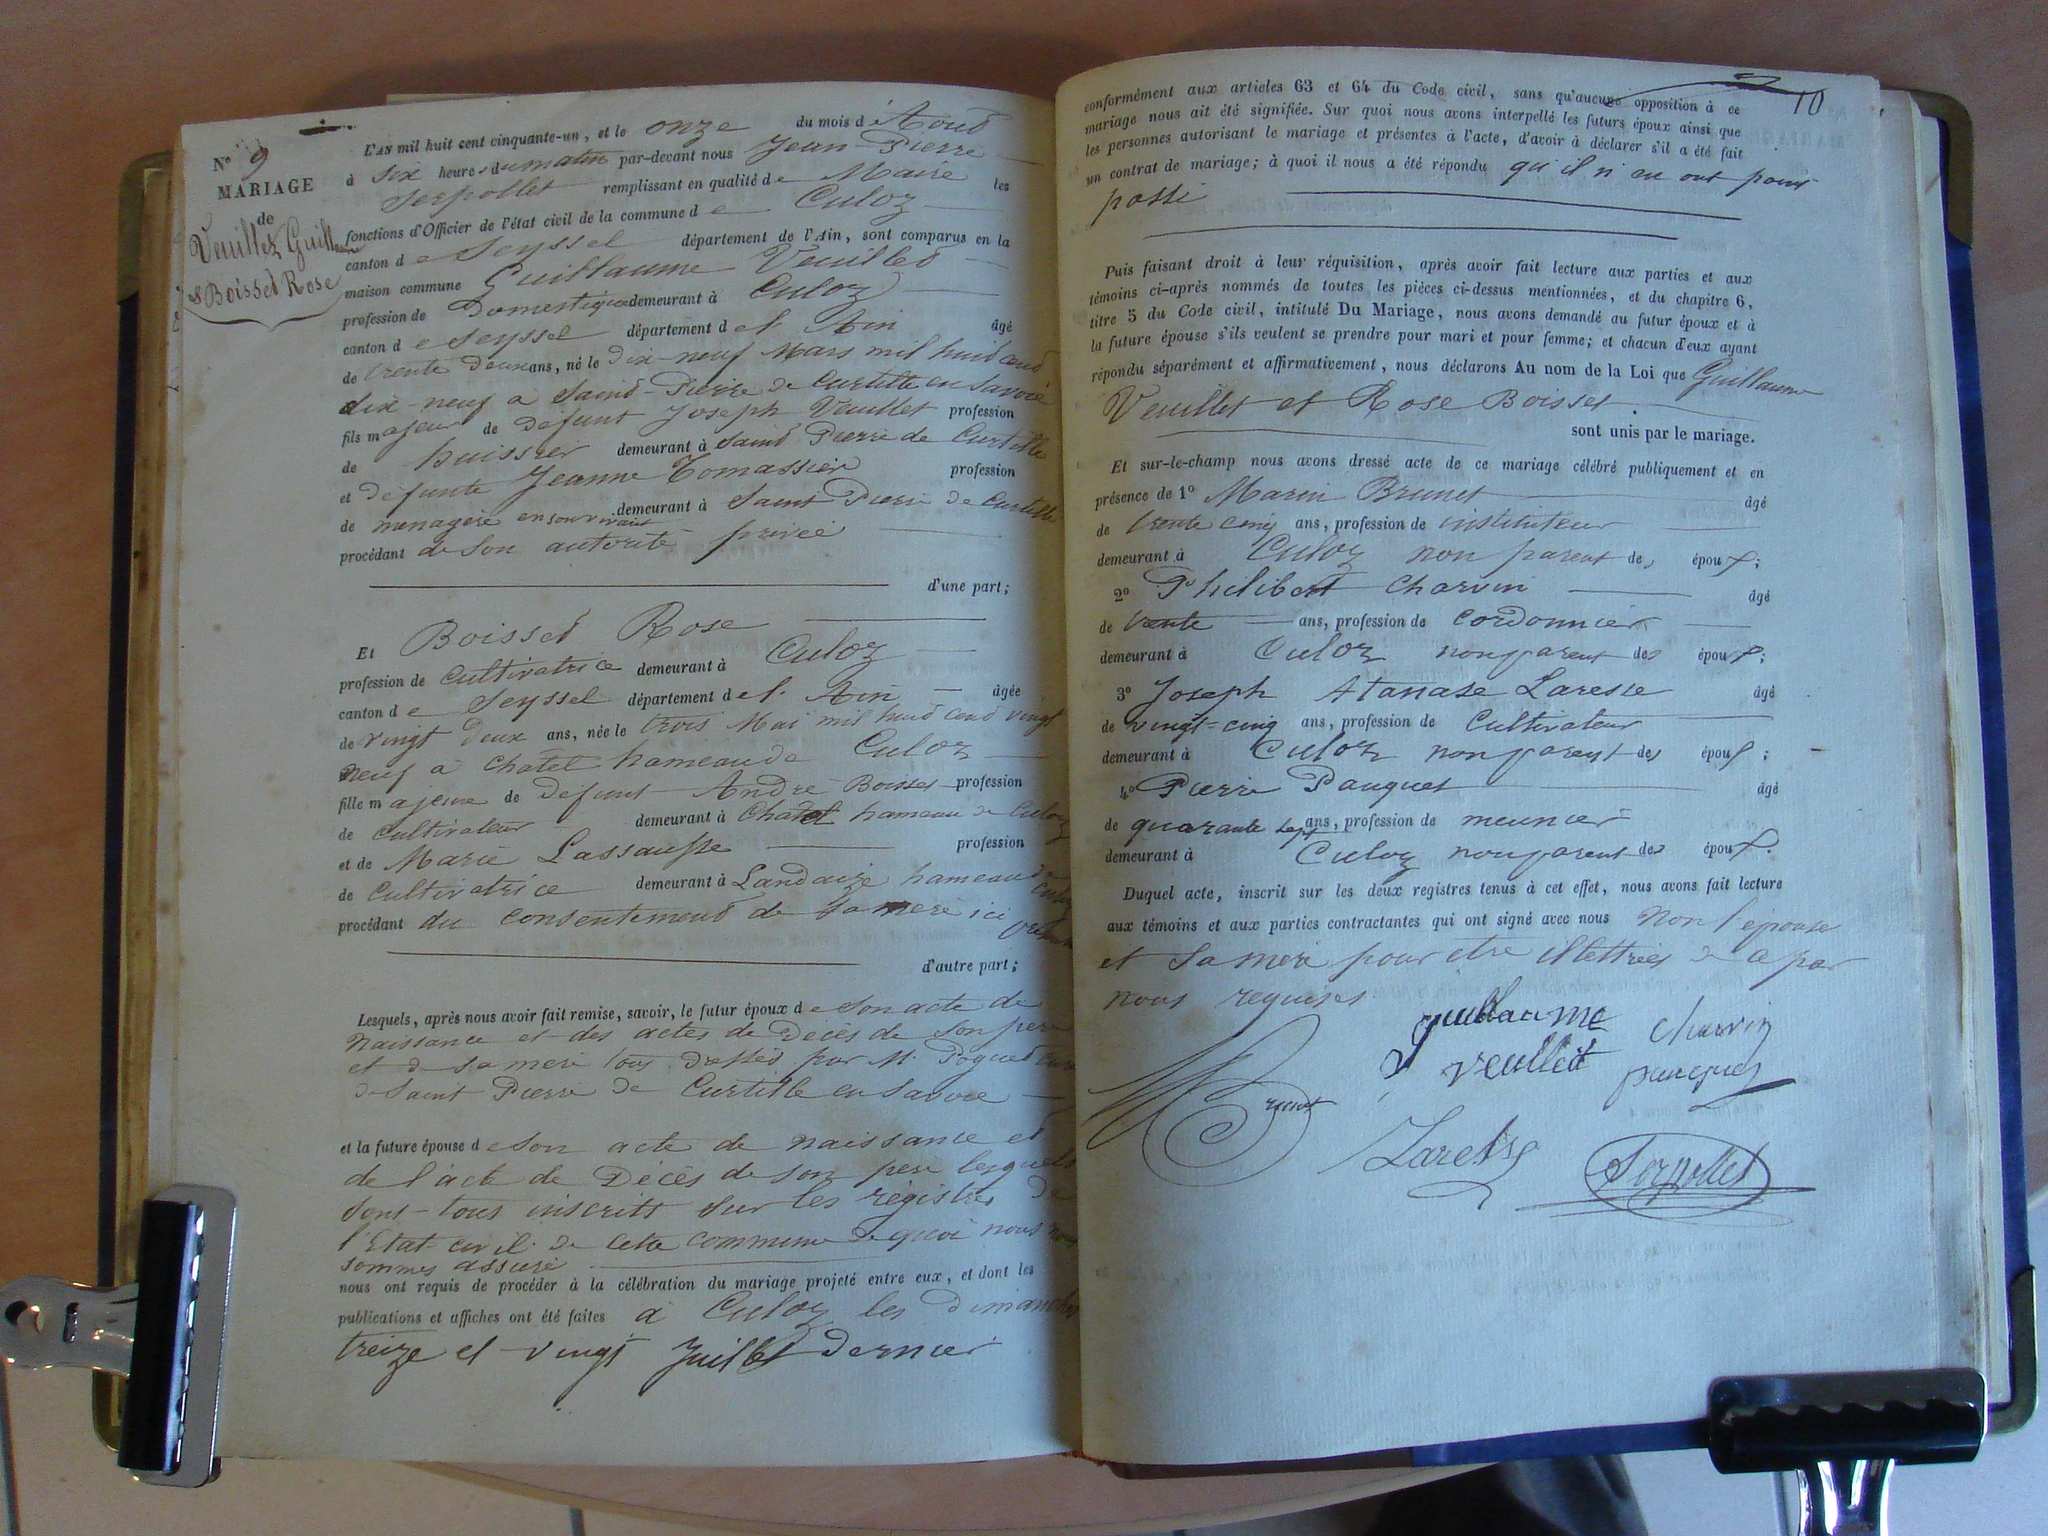 N° 9
MARIAGE
de
Veuillet Guillaume
& Boisset Rose
L'AN mil huit cent cinquante-un, et le onze du mois d'Aout
à six heures du matin par-devant nous Jean-Pierre
Serpollet remplissant en qualité de Maire les
fonctions d'Officier de l'état civil de la commune de Culoz
canton de Seyssel département de l'Ain, sont comparus en la
maison commune Guillaume Veuillet
profession de Domestique demeurant à Culoz
canton de Seyssel département de l'Ain âgé
de trente deux ans, né le dix-neuf Mars mil huit cent
dix-neuf a Saint-Pierre de Curtille en Savoie
fils majeur de defunt Joseph Veuillet profession
de huissier demeurant à Saint Pierre de Curtille
et defunte Jeanne Tomassier profession
de menagere en son vivant demeurant à Saint Pierre de Curtille
procédant de son autorité privée
d'une part;
Et Boisset Rose
profession de Cultivatrice demeurant à Culoz
canton de Seyssel département de l'Ain âgée
de vingt deux ans, née le trois Mai mil huit cent vingt
neuf a Chatel hameau de Culoz
fille majeure de defunt André Boisset profession
de Cultivateur demeurant à Chatel hameau de Culoz
et de Marie Lassausse profession
de Cultivatrice demeurant à Landaize hameau de Culoz
procédant du consentement de sa mere ici présente
d'autre part;
Lesquels, après nous avoir fait remise, savoir, le futur époux de son acte de
naissance et des actes de Décès de son pere
et de sa mere tous dressés par M. Poguet curé
de Saint Pierre de Curtille en Savoie
et la future épouse de son acte de naissance et
de l'acte de Décès de son pere lesquels
sont tous inscrits sur les régistres de
l'Etat civil de cette commune de quoi nous nous
sommes assuré
nous ont requis de procéder à la célébration du mariage projeté entre eux, et dont les
publications et affiches ont été faites à Culoz les dimanches
treize et vingt Juillet dernier
10
conformément aux articles 63 et 64 du Code civil, sans qu'aucune opposition à ce
mariage nous ait été signifiée. Sur quoi nous avons interpellé les futurs époux ainsi que
les personnes autorisant le mariage et présentes à l'acte, d'avoir à déclarer s'il a été fait
un contrat de mariage; à quoi il nous a été répondu qu'il n'en ont point
passé
Puis faisant droit à leur réquisition, après avoir fait lecture aux parties et aux
témoins ci-après nommés de toutes les pièces ci-dessus mentionnées, et du chapitre 6,
titre 5 du Code civil, intitulé Du Mariage, nous avons demandé au futur époux et à
la future épouse s'ils veulent se prendre pour mari et pour femme; et chacun d'eux ayant
répondu séparément et affirmativement, nous déclarons Au nom de la Loi que Guillaume
Veuillet et Rose Boisset
sont unis par le mariage.
Et sur-le-champ nous avons dressé acte de ce mariage célébré publiquement et en
présence de 1° Marin Brunet âgé
de trente cinq ans, profession de instituteur
demeurant à Culoz non parent des époux;
2° Philibert Charvin âgé
de trente ans, profession de cordonnier
demeurant à Culoz non parent des époux;
3° Joseph Atanase Laresse âgé
de vingt-cinq ans, profession de Cultivateur
demeurant à Culoz non parent des époux;
4° Pierre Pauguet âgé
de quarante sept ans, profession de meunier
demeurant à Culoz non parent des époux.
Duquel acte, inscrit sur les deux registres tenus à cet effet, nous avons fait lecture
aux témoins et aux parties contractantes qui ont signé avec nous non l'epouse
et sa mere pour etre illettrées de ce par
nous requises
Guillaume Charvin
Veuillet pauquet
M Brunet
Laresse Serpollet